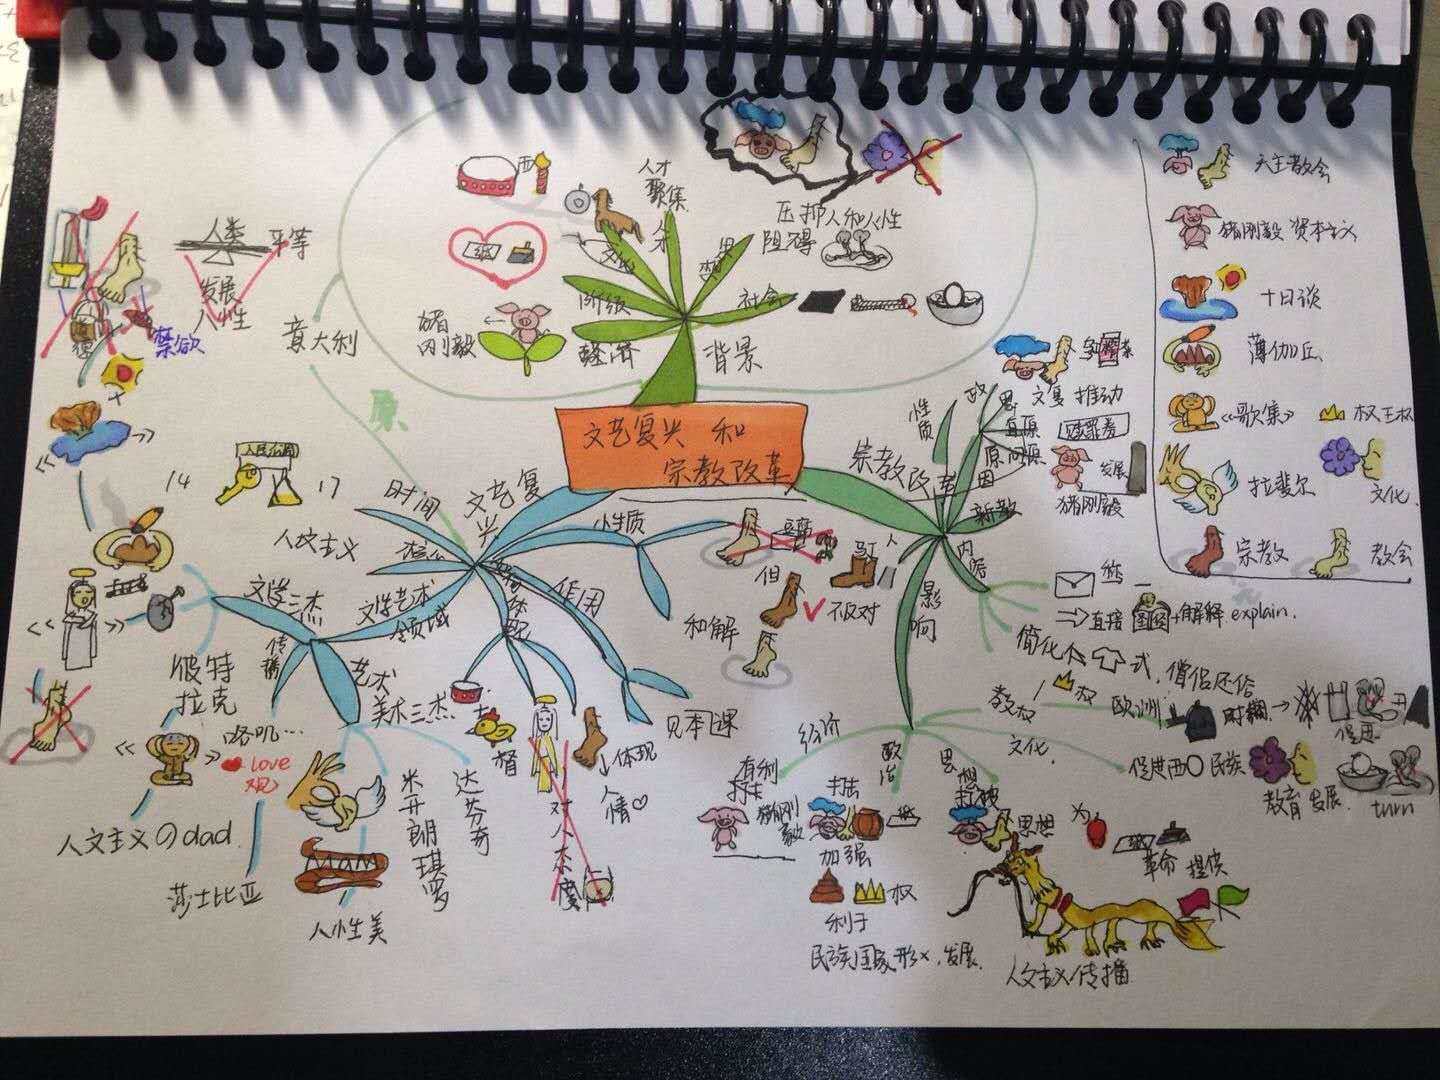 文艺复兴 和
宗教改革
背景
西
人才
聚集
人才
文化
阶级
经济
猪
刚毅
纸
思想
压抑人和人性
阻碍
社会
意大利
原
人类 平等
发展
人性
禁欲
文艺复
兴
时间
14
人民公园
17
人文主义
文学艺术
领域
文学三杰
传播
彼特
拉克
《 》
人文主义の dad
咯叽…
love
观
莎士比亚
艺术
美术三杰
MAM
人性美
米
开
朗
琪
罗
达
芬
奇
体
现
督
对
人
态
度
体现
人
情
作用
见本课
性质
但
不反对
和解
宗教改革
性质
政
文复 推动
赎罪券
发展
猪刚毅
新教
内容
直接
+解释 explain.
简化 式,僧侣还俗
影
响
经济
有利
打击
猪刚
毅
政
治
打击
加强
权
利于
民族国家形×,发展.
思
想
打破
思想
为
纸
革命 提供
人文主义传播
文化
教权
权
欧洲
促进西 民族
教育 发展.
turn
天主教会
猪刚毅 资本主义
十日谈
薄伽丘
《歌集》
权王权
拉斐尔
文化
宗教
教会